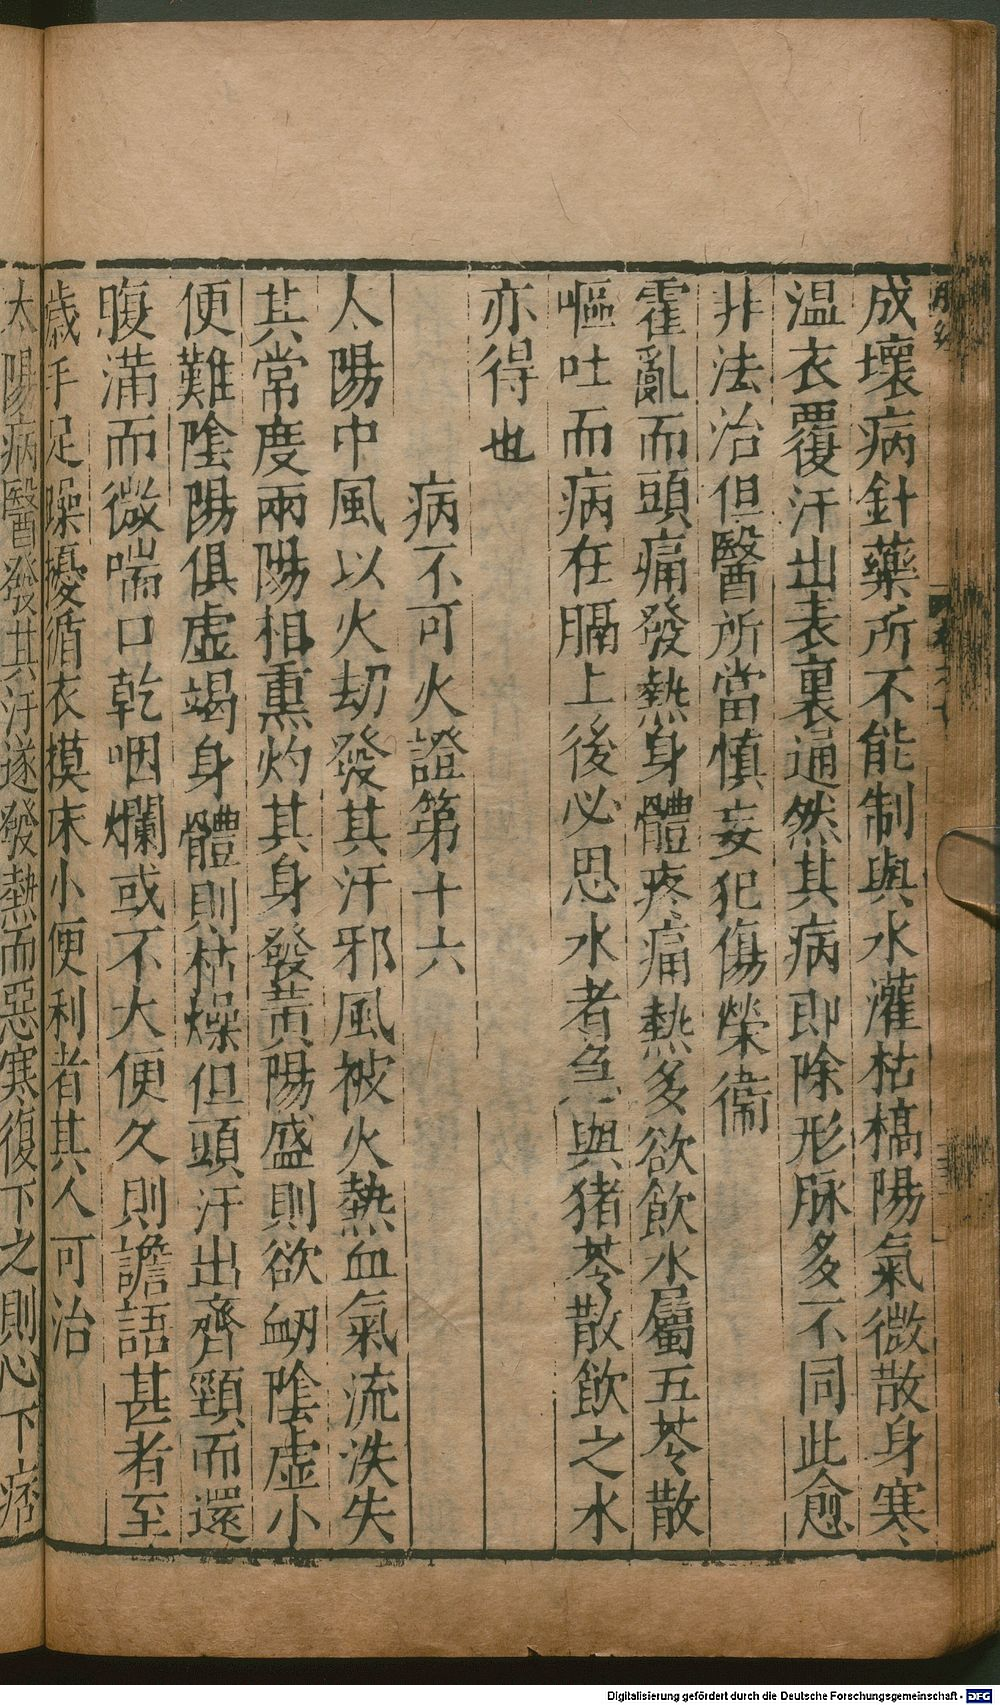 成壞病針藥所不能制與水灌枯槁陽氣微散身寒
温衣覆汗出表裏通然其病即除形脉多不同此愈
非法治但醫所當慎妄犯傷榮衞
霍亂而頭痛發熱身體疼痛熱多欲飲水屬五苓散
嘔吐而病在膈上後必思水者急與猪苓散飲之水
亦得也
病不可火證第十六
太陽中風以火劫發其汗邪風被火熱血氣流泆失
其常度兩陽相熏灼其身發黃陽盛則欲衄陰虛小
便難陰陽俱虛竭身體則枯燥但頭汗出齊頸而還
腹滿而微喘口乾咽爛或不大便久則譫語甚者至
歲手足躁擾循衣摸床小便利者其人可治
太陽病醫發其汗遂發熱而惡寒復下之則心下痞
Digitalisierung gefördert durch die Deutsche Forschungsgemeinschaft - DFG